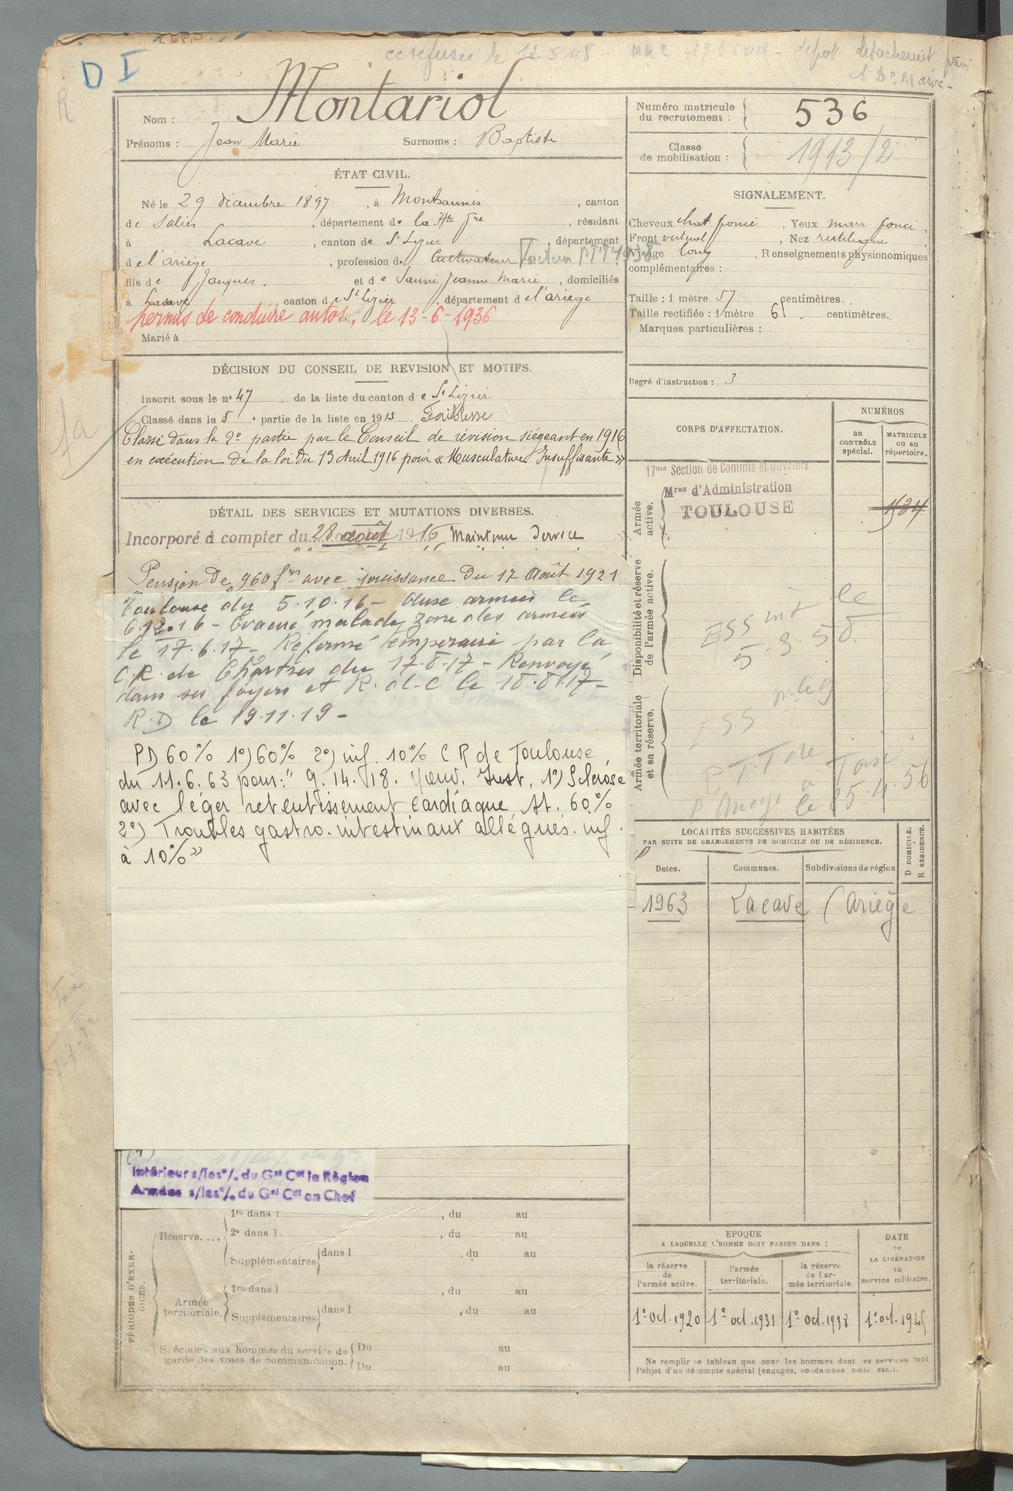 D I
cc refusée le 12.5.48
R
Nom : Montariol
Prénoms : Jean Marie Surnoms : Baptiste
Numéro matricule du recrutement : 536
Classe de mobilisation : 1913/2
ÉTAT CIVIL.
Né le 29 décembre 1897, à Montsaunès, canton
de Salies, département de la Hte Gne, résidant
à Lacave, canton de St Lizier, département
de l'ariège, profession de Cultivateur Facteur PTT
fils de Jacques. et de Jeanne Marie, domiciliés
à Lacave, canton de St Lizier, département de l'ariège
permis de conduire autos, le 13-6-1936
Marié à
SIGNALEMENT.
Cheveux chat foncé, Yeux marr foncé,
Front vertical, Nez rectiligne,
Visage long, Renseignements physionomiques
complémentaires :
Taille : 1 mètre 57 centimètres.
Taille rectifiée : 1 mètre 61. centimètres.
Marques particulières :
Degré d'instruction : 3
DÉCISION DU CONSEIL DE REVISION ET MOTIFS.
Inscrit sous le no 47 de la liste du canton de St Lizier
Classé dans la 5e partie de la liste en 1915 Faiblesse
Classé dans la 2e partie par le Conseil de révision siégeant en 1916
en exécution de la loi du 13 Avril 1916 pour « Musculature Insuffisante »
DÉTAIL DES SERVICES ET MUTATIONS DIVERSES.
Incorporé à compter du 28 août 1916 Maintenu Service
Pension de 960 frs avec jouissance du 17 Août 1921
Toulouse du 5.10.16 - aux armées le
6.12.16 - Evacué malade, zone des armées
le 17.6.17 - Réformé temporaire par la
C.R. de Chartres du 17.8.17 - Renvoyé
dans ses foyers et R. d. C le 18.8.17 -
R.D le 19.11.19 -
PD 60% 1°) 60% 2°) inf. 10% C R de Toulouse
du 11.6.63 pour: " G. 14.18. 1°) Sclérose
avec léger retentissement cardiaque At. 60%
2°) Troubles gastro-intestinaux allégués. inf.
à 10% »
CORPS D'AFFECTATION.
NUMÉROS
au CONTRÔLE spécial.
MATRICULE ou au répertoire.
Armée active.
17me Section de Commis et Ouvriers
Mres d'Administration
TOULOUSE
Disponibilité et réserve de l'armée active.
ESS int le
5.3.58
Armée territoriale et sa réserve.
LOCALITÉS SUCCESSIVES HABITÉES
PAR SUITE DE CHANGEMENTS DE DOMICILE OU DE RÉSIDENCE.
Dates. Communes. Subdivisions de région
D DOMICILE. R RÉSIDENCE.
1963 Lacave (Ariège
Intérieur s/les o/. du Gal Ct la Région
Armées s/les o/. du Gal Ct en Chef
PÉRIODES D'EXERCICES.
Réserve....
1re dans l , du au
2e dans l , du au
Supplémentaires dans l , du au
Armée territoriale.
1re dans l , du au
Supplémentaires dans l , du au
Spéciales aux hommes du service de garde des voies de communication.
Du au
Du au
EPOQUE
A LAQUELLE L'HOMME DOIT PASSER DANS :
DATE de LA LIBÉRATION du service militaire.
la réserve de l'armée active.
l'armée territoriale.
la réserve de l'armée territoriale.
1er oct. 1920 1er oct. 1931 1er oct. 1938 1er oct. 1945
Ne remplir ce tableau que pour les hommes dont les services font
l'objet d'un décompte spécial (engagés, condamnés, omis, etc.).